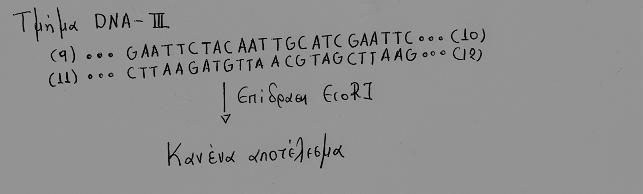 Τμήμα DNA-III
(9) ••• GAATTCTACAATTGCATCGAATTC ••• (10)
(11) ••• CTTAAGATGTTAACGTAGCTTAAG ••• (12)
Επίδραση EcoRI
Κανένα αποτέλεσμα